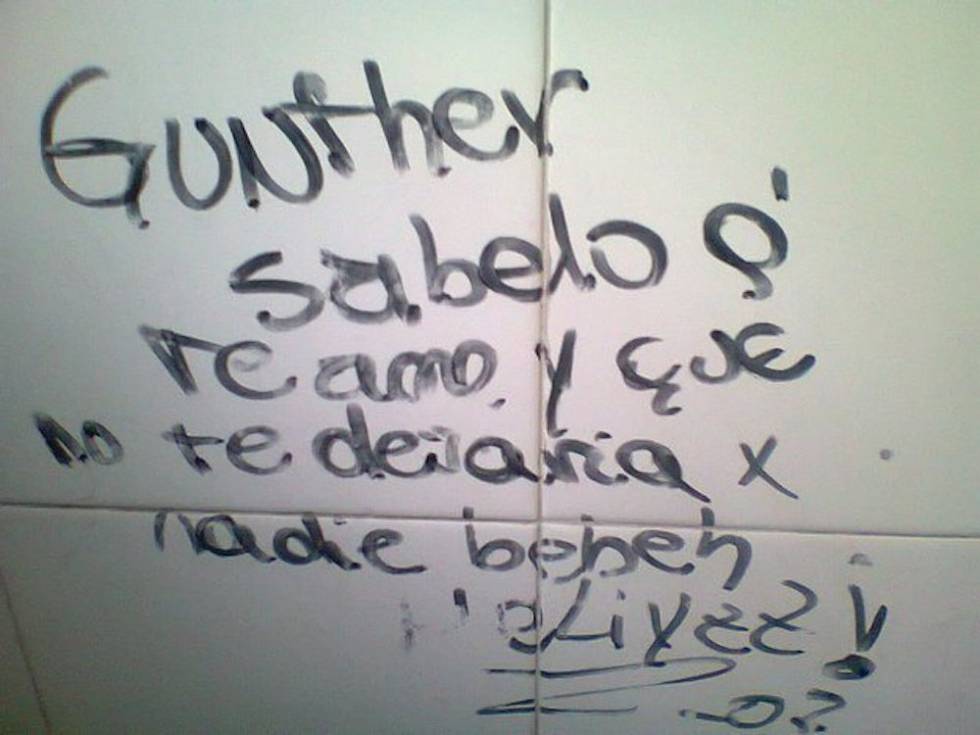 GUNther
sabelo q'
Te amo y que
no te dejaria x
nadie bebeh